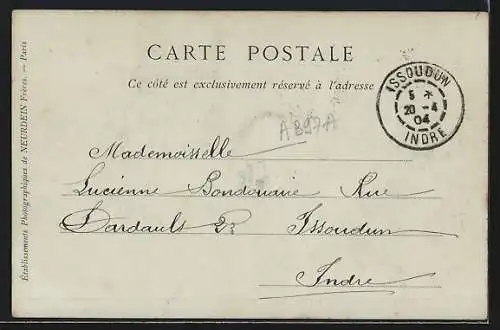 CARTE POSTALE
Ce côté est exclusivement réservé à l'adresse
ISSOUDUN
5 *
20 -4
04
INDRE
A897A
Mademoiselle
Lucienne Bondouaire Rue
Dardault 22 Issoudun
Indre
Établissements Photographiques de NEURDEIN Frères. — Paris